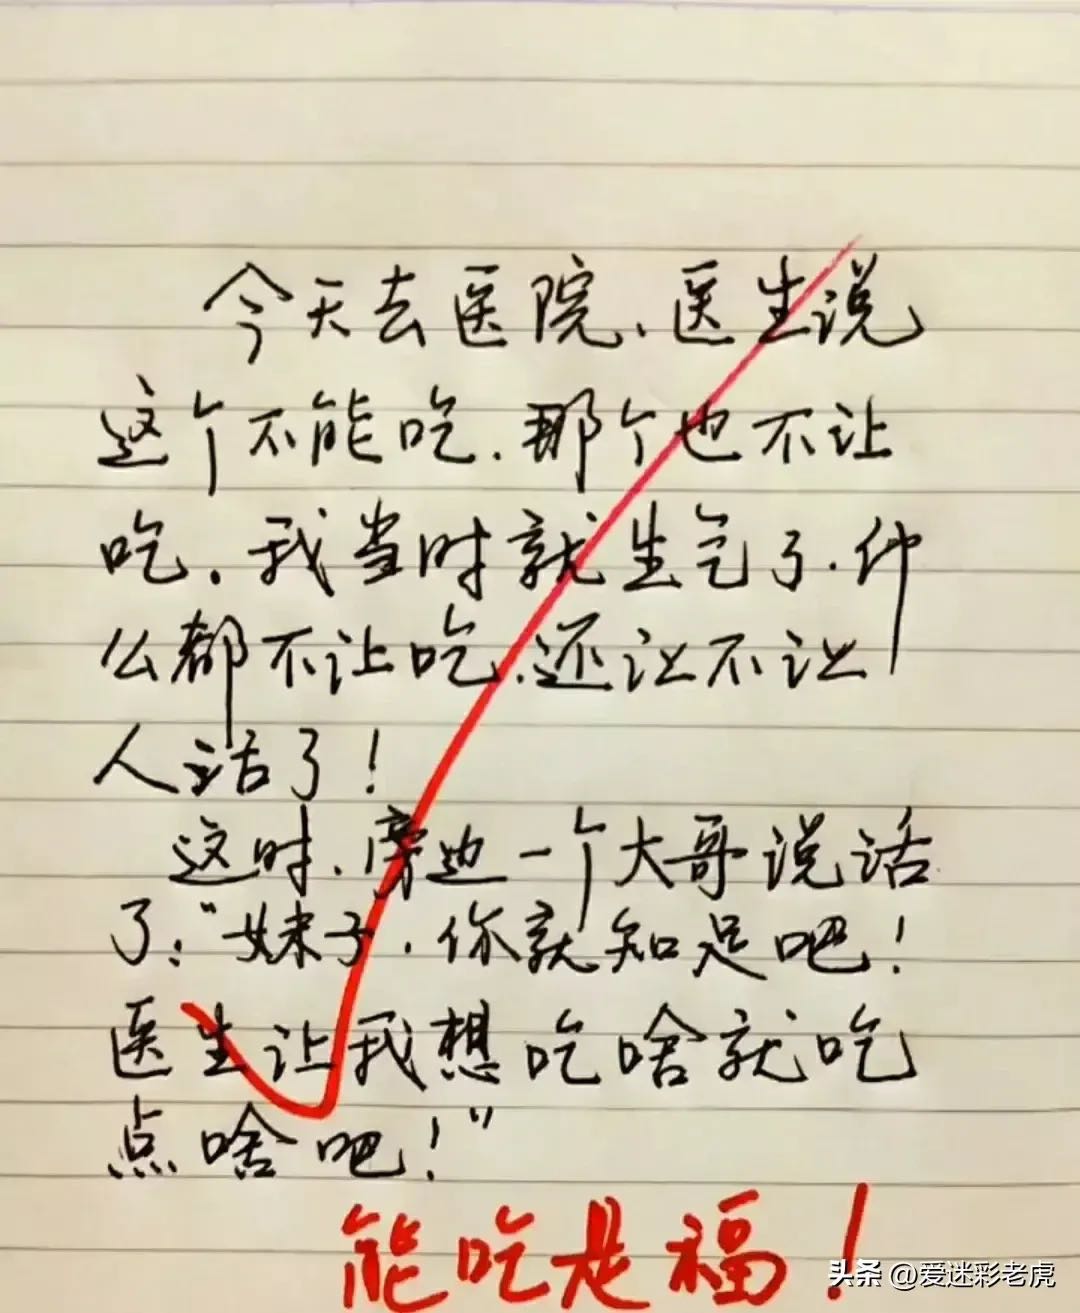 今天去医院、医生说
这个不能吃.那个也不让
吃.我当时就生气了.什
么都不让吃.还让不让
人活了!
这时、旁边一个大哥说话
了:“妹子.你就知足吧!
医生让我想吃啥就吃
点啥吧!”
能吃是福!
头条@爱迷彩老虎